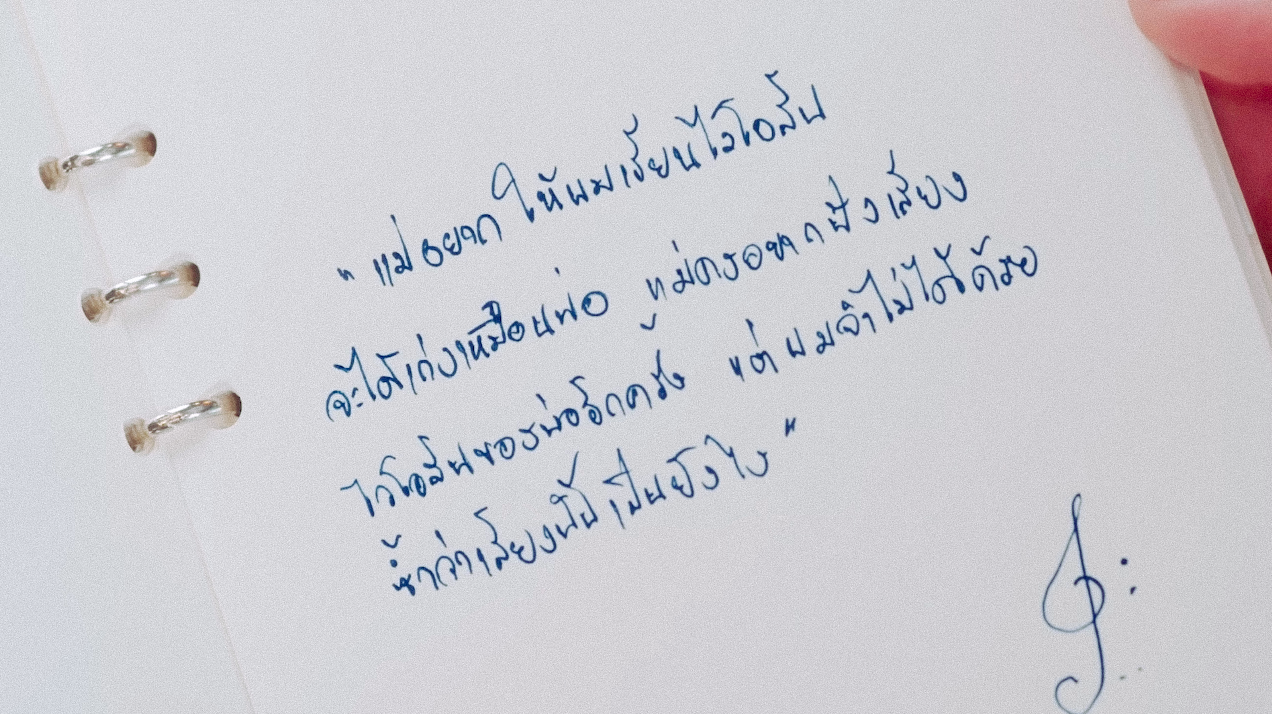 "แม่อยากให้ผมเรียนไวโอลิน
จะได้เก่งเหมือนพ่อ แม่คงอยากฟังเสียง
ไวโอลินของพ่ออีกครั้ง แต่ผมจำไม่ได้ด้วย
ซ้ำว่าเสียงนั้นเป็นยังไง"